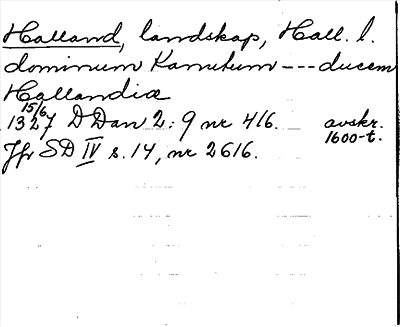 Halland, landskap, Hall. l.
dominum Kanutum --- ducem
Hallandiæ
15/6
1327 DDan 2:9 nr 416. avskr. 1600-t.
Jfr SD IV s. 14, nr 2616.